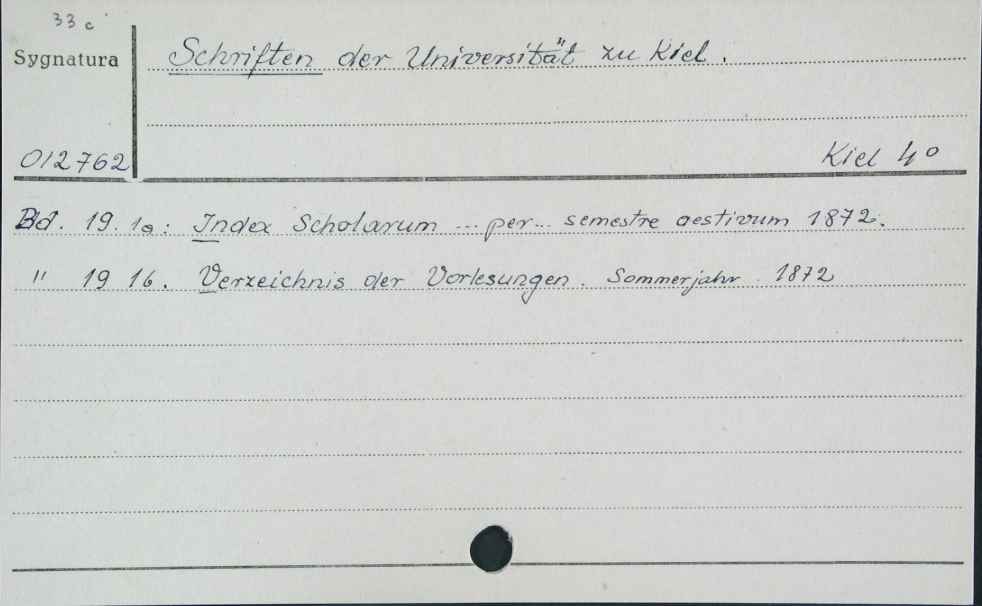 33 c
Sygnatura
Schriften der Universität zu Kiel.
012762
Kiel 4°
Bd. 19. 1a: Index Scholarum ... per... semestre aestivum 1872.
" 19 1b. Verzeichnis der Vorlesungen. Sommerjahr 1872